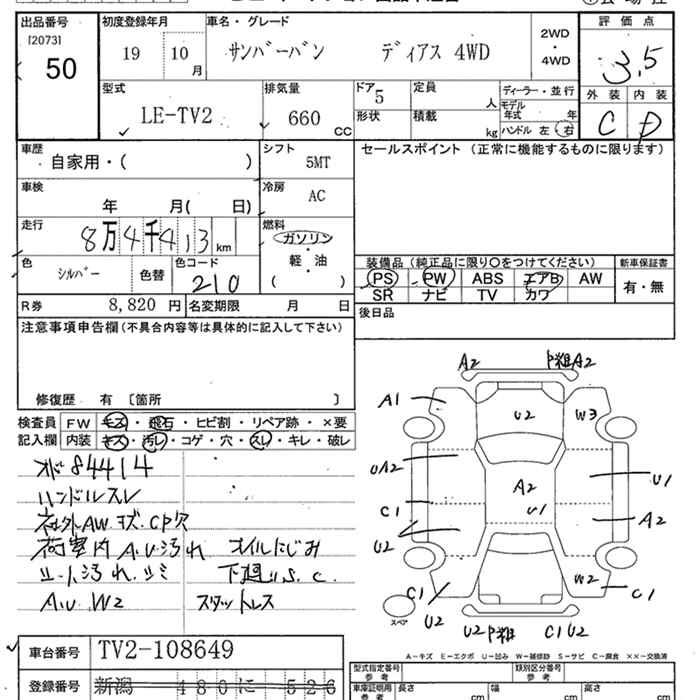 出品番号 初度登録年月 車名・グレード
[2073]
50
19 10 月
サンバーバン ディアス 4WD
2WD
・
4WD
評 価 点
3.5
型式
LE-TV2
排気量
660 cc
ドア 5
形状
定員 人
積載 kg
ディーラー・並行
モデル
年式 年
ハンドル 左 右
外装 内装
C D
車歴
自家用・( )
シフト
5MT
セールスポイント (正常に機能するものに限ります)
車検
年 月( 日)
冷房
AC
走行
8万4千413 km
燃料
ガソリン
・
軽・油
・
( )
色
シルバー 色替
色コード
210
装備品 (純正品に限り〇をつけてください)
PS PW ABS エアB AW
SR ナビ TV カワ
新車保証書
有・無
R券 8,820 円 名変期限 月 日
後日品
注意事項申告欄(不具合内容等は具体的に記入して下さい)
修復歴 有 〔箇所 〕
検査員
記入欄
FW キズ・飛石・ヒビ割・リペア跡・×要
内装 キズ・汚レ・コゲ・穴・スレ・キレ・破レ
オド84414
ハンドルスレ
社外AW キズ・CP欠
荷室内 A.U汚れ オイルにじみ
シート汚れ.シミ 下廻りS.C
A.U W2 スタットレス
A2 P粗A2
A1 U2 W3
UA2 A2 U1
C1 U1 A2
U2
C1 W2 C1
スペア U2
U2 P粗 C1 U2
A－キズ E－エクボ U－凹み W－補修跡 S－サビ C－腐食 ××－交換済
車台番号 TV2-108649
登録番号 新潟 480 に 526
型式指定番号
参考
類別区分番号
参考
車庫証明用
参考
長さ cm 幅 cm 高さ cm